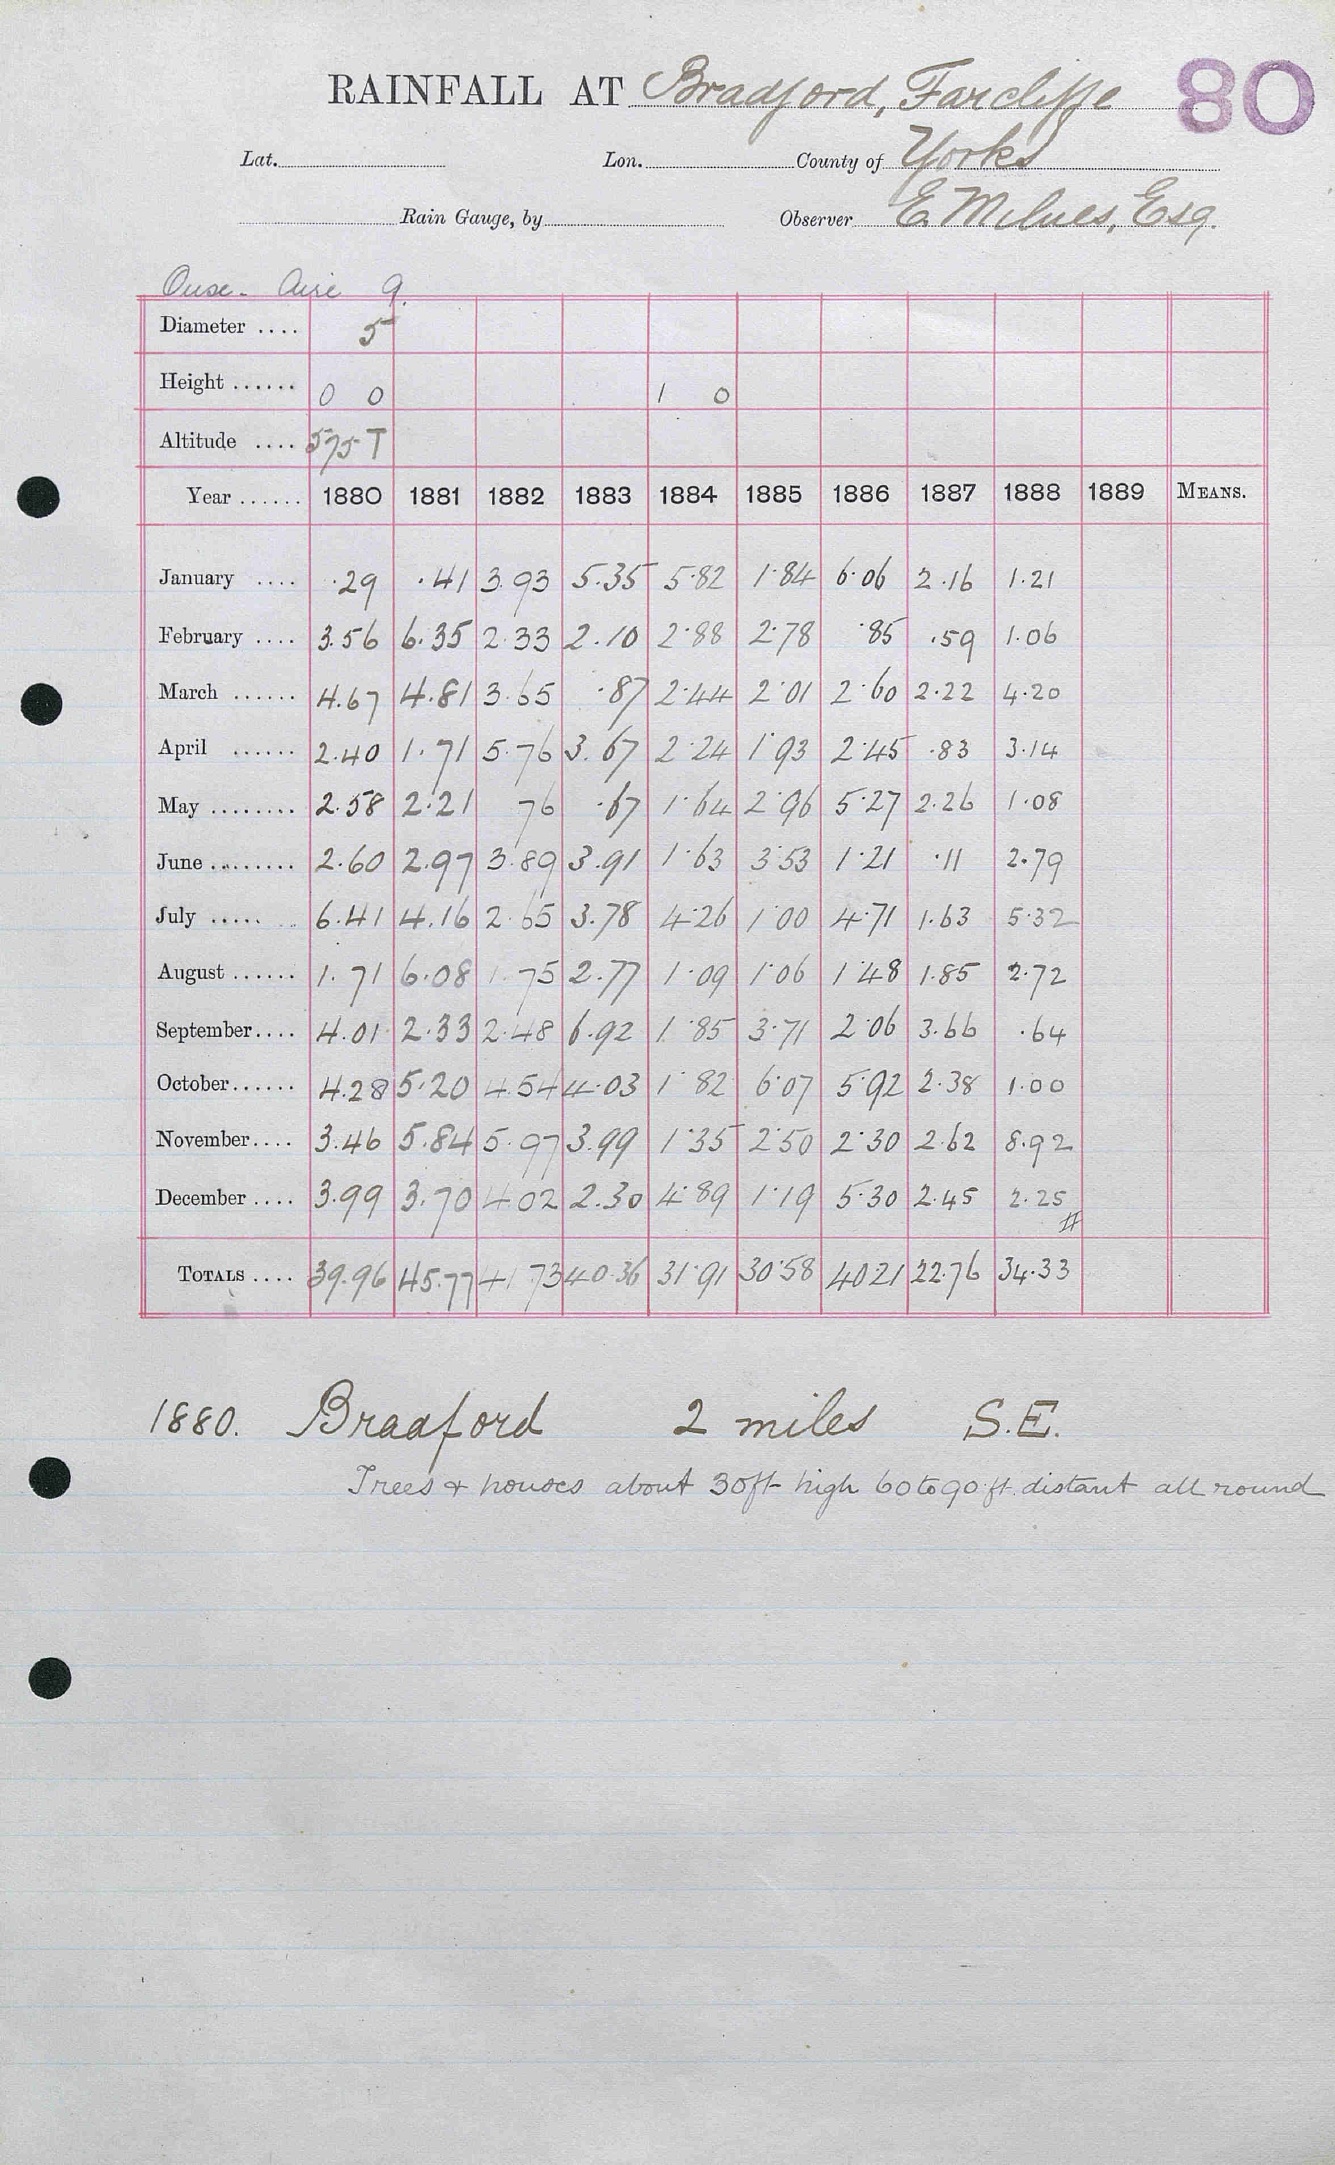 RAINFALL AT Bradford, Farcliffe 80
Lat. Lon. County of Yorks
Rain Gauge, by Observer E. Milnes, Esq.
Ouse - Aire 9.
Diameter .... 5
Height ...... 0 0 1 0
Altitude .... 575 T
Year ...... 1880 1881 1882 1883 1884 1885 1886 1887 1888 1889 MEANS.
January .... .29 .41 3.93 5.35 5.82 1.84 6.06 2.16 1.21
February .... 3.56 6.35 2.33 2.10 2.88 2.78 .85 .59 1.06
March ...... 4.67 4.81 3.65 .87 2.44 2.01 2.60 2.22 4.20
April ...... 2.40 1.71 5.76 3.67 2.24 1.93 2.45 .83 3.14
May ........ 2.58 2.21 76 .67 1.64 2.96 5.27 2.26 1.08
June ........ 2.60 2.97 3.89 3.91 1.63 3.53 1.21 .11 2.79
July ..... .. 6.41 4.16 2.65 3.78 4.26 1.00 4.71 1.63 5.32
August ...... 1.71 6.08 1.75 2.77 1.09 1.06 1.48 1.85 2.72
September.... 4.01 2.33 2.48 6.92 1.85 3.71 2.06 3.66 .64
October...... 4.28 5.20 4.54 4.03 1.82 6.07 5.92 2.38 1.00
November.... 3.46 5.84 5.97 3.99 1.35 2.50 2.30 2.62 8.92
December .... 3.99 3.70 4.02 2.30 4.89 1.19 5.30 2.45 2.25
#
TOTALS .... 39.96 45.77 41.73 40.36 31.91 30.58 40.21 22.76 34.33
1880. Bradford 2 miles S.E.
Trees & houses about 30ft high 60 to 90 ft. distant all round